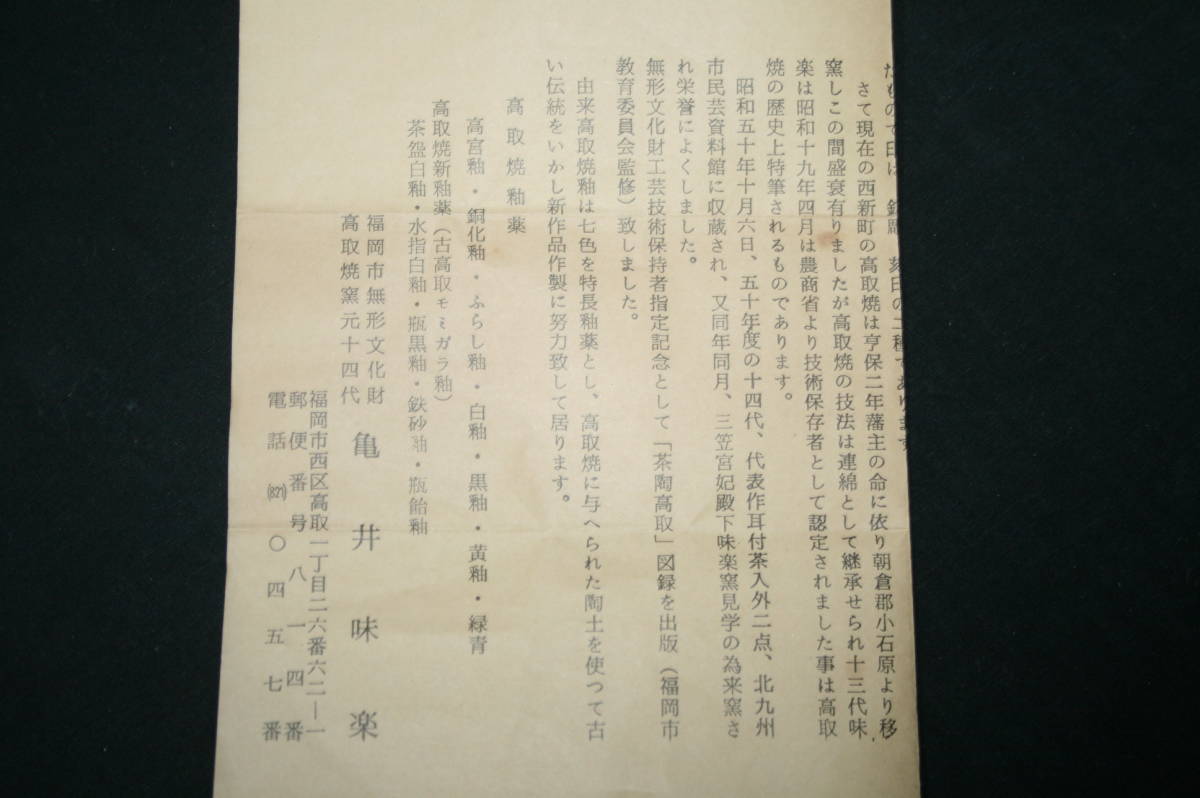 たもので印は、銘彫、刻印の二種であります
さて現在の西新町の高取焼は亨保二年藩主の命に依り朝倉郡小石原より移
窯しこの間盛衰有りましたが高取焼の技法は連綿として継承せられ十三代味
楽は昭和十九年四月は農商省より技術保存者として認定されました事は高取
焼の歴史上特筆されるものであります。
昭和五十年十月六日、五十年度の十四代、代表作耳付茶入外二点、北九州
市民芸資料館に収蔵され、又同年同月、三笠宮妃殿下味楽窯見学の為来窯さ
れ栄誉によくしました。
無形文化財工芸技術保持者指定記念として「茶陶高取」図録を出版（福岡市
教育委員会監修）致しました。
由来高取焼釉は七色を特長釉薬とし、高取焼に与へられた陶土を使つて古
い伝統をいかし新作品作製に努力致して居ります。
高取焼釉薬
高宮釉・銅化釉・ふらし釉・白釉・黒釉・黄釉・緑青
高取焼新釉薬（古高取モミガラ釉）
茶盌白釉・水指白釉・瓶黒釉・鉄砂釉・瓶飴釉
福岡市無形文化財
高取焼窯元十四代
亀井味楽
福岡市西区高取一丁目二六番六二―一
郵便番号八一四番
電話(821)〇四五七番